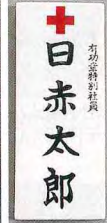 有功章特別社員
日赤太郎